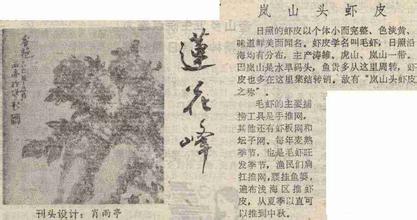 莲花峰
刊头设计：肖雨亭
岚山头虾皮
日照的虾皮以个体小而完整、色淡黄、
味道鲜美而闻名。虾皮学名叫毛虾，日照沿
海均有分布，主产涛雒、虎山、岚山一带。
因岚山是水旱码头，鱼贵多从这里周转，虾
皮也多在这里集结转销，故有“岚山头虾皮
之称”。
毛虾的主要捕
捞工具是手推网，
其他还有虾板网和
坛子网。每年麦熟
季节，也是毛虾旺
发季节，渔民们肩
扛推网，腰挂鱼篓，
遍布浅海区推虾
皮，从夏季以直可
以推到中秋。